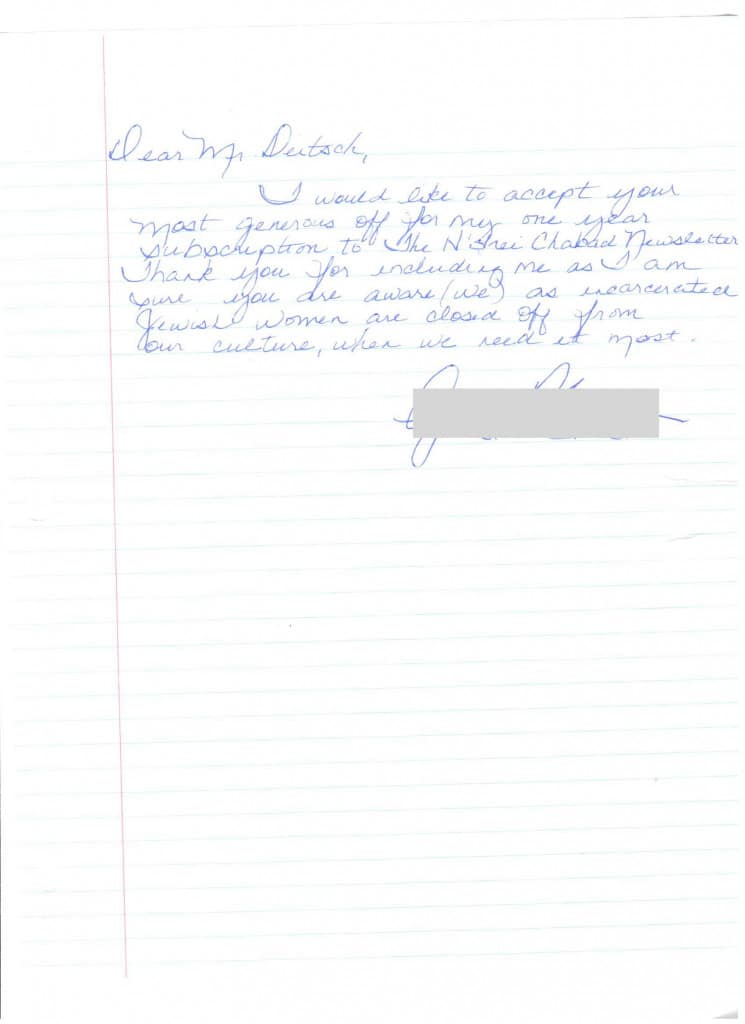 Dear Mr. Deitsch,
I would like to accept your
most generous off for my one year
subscription to "The N'Shei Chabad Newsletter
Thank you for including me as I am
sure you are aware (we) as incarcerated
Jewish women are closed off from
our culture, when we need it most.